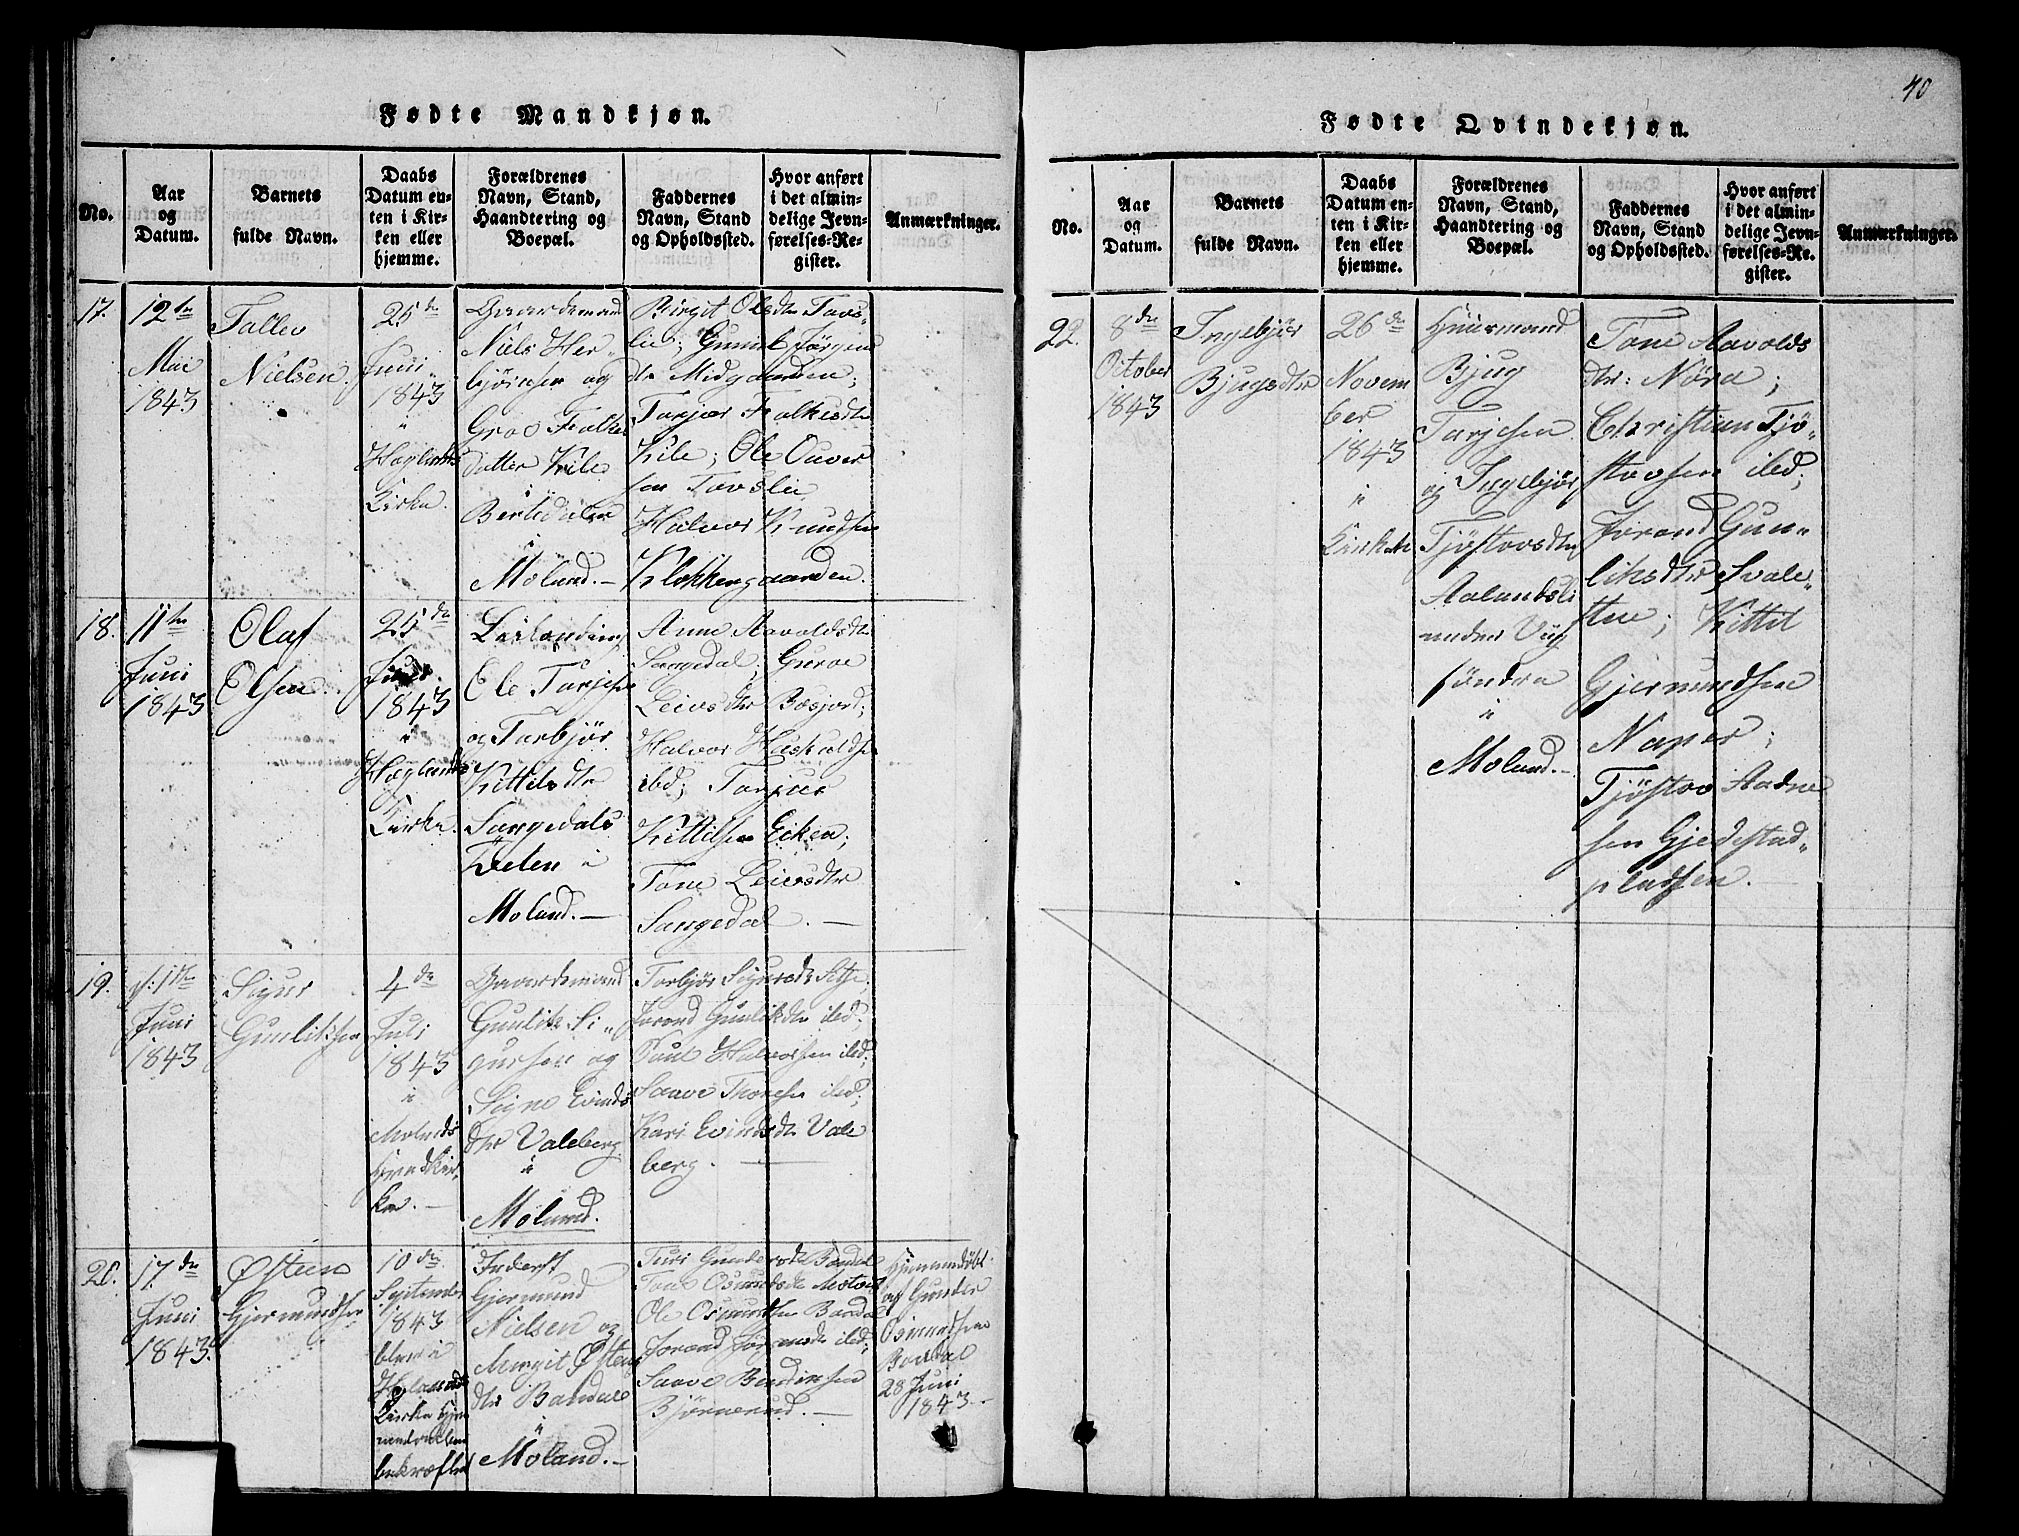 Fødte Mandkjøn.
No.
Aar
og
Datum.
Barnets
fulde Navn.
Daabs
Datum en-
ten i Kir-
ken eller
hjemme.
Forældrenes
Navn, Stand,
Haandtering og
Boepæl.
Faddernes
Navn, Stand
og Opholdssted.
Hvor anført
i det almin-
delige Jevn-
førelses-Re-
gister.
Anmærkninger.
17.
12te
Mai
1843
Tallev
Nielsen.
25de
Juni
1843
i
Høglands
Kirke.
Gaardmand
Niels Her-
bjørnsen og
Groe Falkes
datter Kile
i
Moland.-
Birgit Olsdtr Tovs-
lie; Gunild Jørgens
dtr Midgaarden;
Tarjær Falkesdtr
Kile; Ole Oever
sen Tovslie
Halvor Knudsen
Klokkergaarden.
18.
11te
Juni
1843
Olaf
Olsen.
25de
Juni.
1843
i
Høglands
Kirke.
Ole Tarjesen
og Torbjør
Kittilsdtr
Sangedals
Eielen i
Moland.-
Anne Aavoldsdtr
Sangedal; Guroe
Leivsdtr Bosjord;
Halvor Huskuldsen
ibd; Tarjær
Kittilsen Eiken;
Tone Leivsdtr
Sangedal.-
19.
1ste
Juni
1843
Sigur
Gunlitsen
4de
Juli
1843
i
Molands
Hvedkir-
ke.-
Gaardmand
Gunlik Si-
gursen og
Signe Evinds
dtr Valeberg
i
Moland.
Torbjør Sigursdtr
Jorand Gunliksdtr ibd;
Poul Halvorsen ibd;
Saave Thorsen ibd;
Kari Evindsdtr Vale
berg.-
20.
17de
Juni
1843.
Østen
Gjermundsen
10de
September
1843
blev i
Høglands
Kirke Hjem
medaaben
bekræftet
Inderst
Gjermund
Nielsen og
Margit Østens
dtr Bandal
i
Moland.-
Turi Gundersdtr Bandal
Tone Osmundsdtr
Ole Osmundsen Bandal
Jorand Jørgensdtr ibd;
Saave Bendixsen
Bjørnerud.-
Hjemmedøbt
og Gunder
Osmundsen
Bandal
28 Juni
1843.-
40
Fødte Qvindekjøn.
No.
Aar
og
Datum.
Barnets
fulde Navn.
Daabs
Datum en-
ten i Kir-
ken eller
hjemme.
Forældrenes
Navn, Stand,
Haandtering og
Boepæl.
Faddernes
Navn, Stand
og Opholdssted.
Hvor anført
i det almin-
delige Jevn-
førelses-Re-
gister.
Anmærkninger.
22.
8de
October
1843
Ingebjør
Bjugsdtr
26de
Novem
ber
1843
i
Kirken
Huusmand
Bjug
Tarjesen
og Ingebjør
Tjøstovsdtr
Aalandsli
under Vig
søndre
i
Moland.-
Tone Aavolds
dtr: Nordre;
Christian Tjø-
stovsen ibd;
Jorand Gun-
liksdtr Svale-
stue; Kittil
Gjermundsen
Naper;
Tjøstov Aadne
sen Gjedestad-
pladsen.-